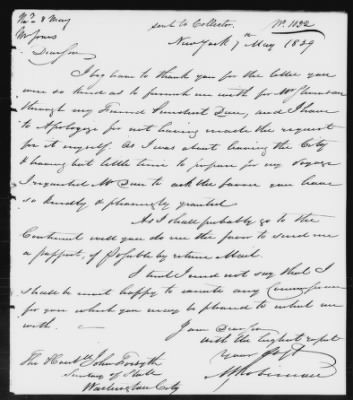 sent to Collector. No. 1132
New York 7th May 1839
Dear Sir
I beg leave to thank you for the letter you
were so kind as to furnish me with for Mr
through my Friend President Duer, and I have
to Apologize for not having made the request
for it myself. As I was about leaving the City
& having but little time to prepare for my Voyage
I requested Mr Duer to ask the favor you have
so kindly & pleasingly granted
As I shall probably go to the
Continent will you do me the favor to send me
a passport, if possible by return Mail.
I trust I need not say that I
shall be most happy to execute any Commission
for you which you may be pleased to entrust me
with.
I am Dear Sir
with the highest respt
Your
Robinson
The Honble John Forsyth
Secretary of State
Washington City